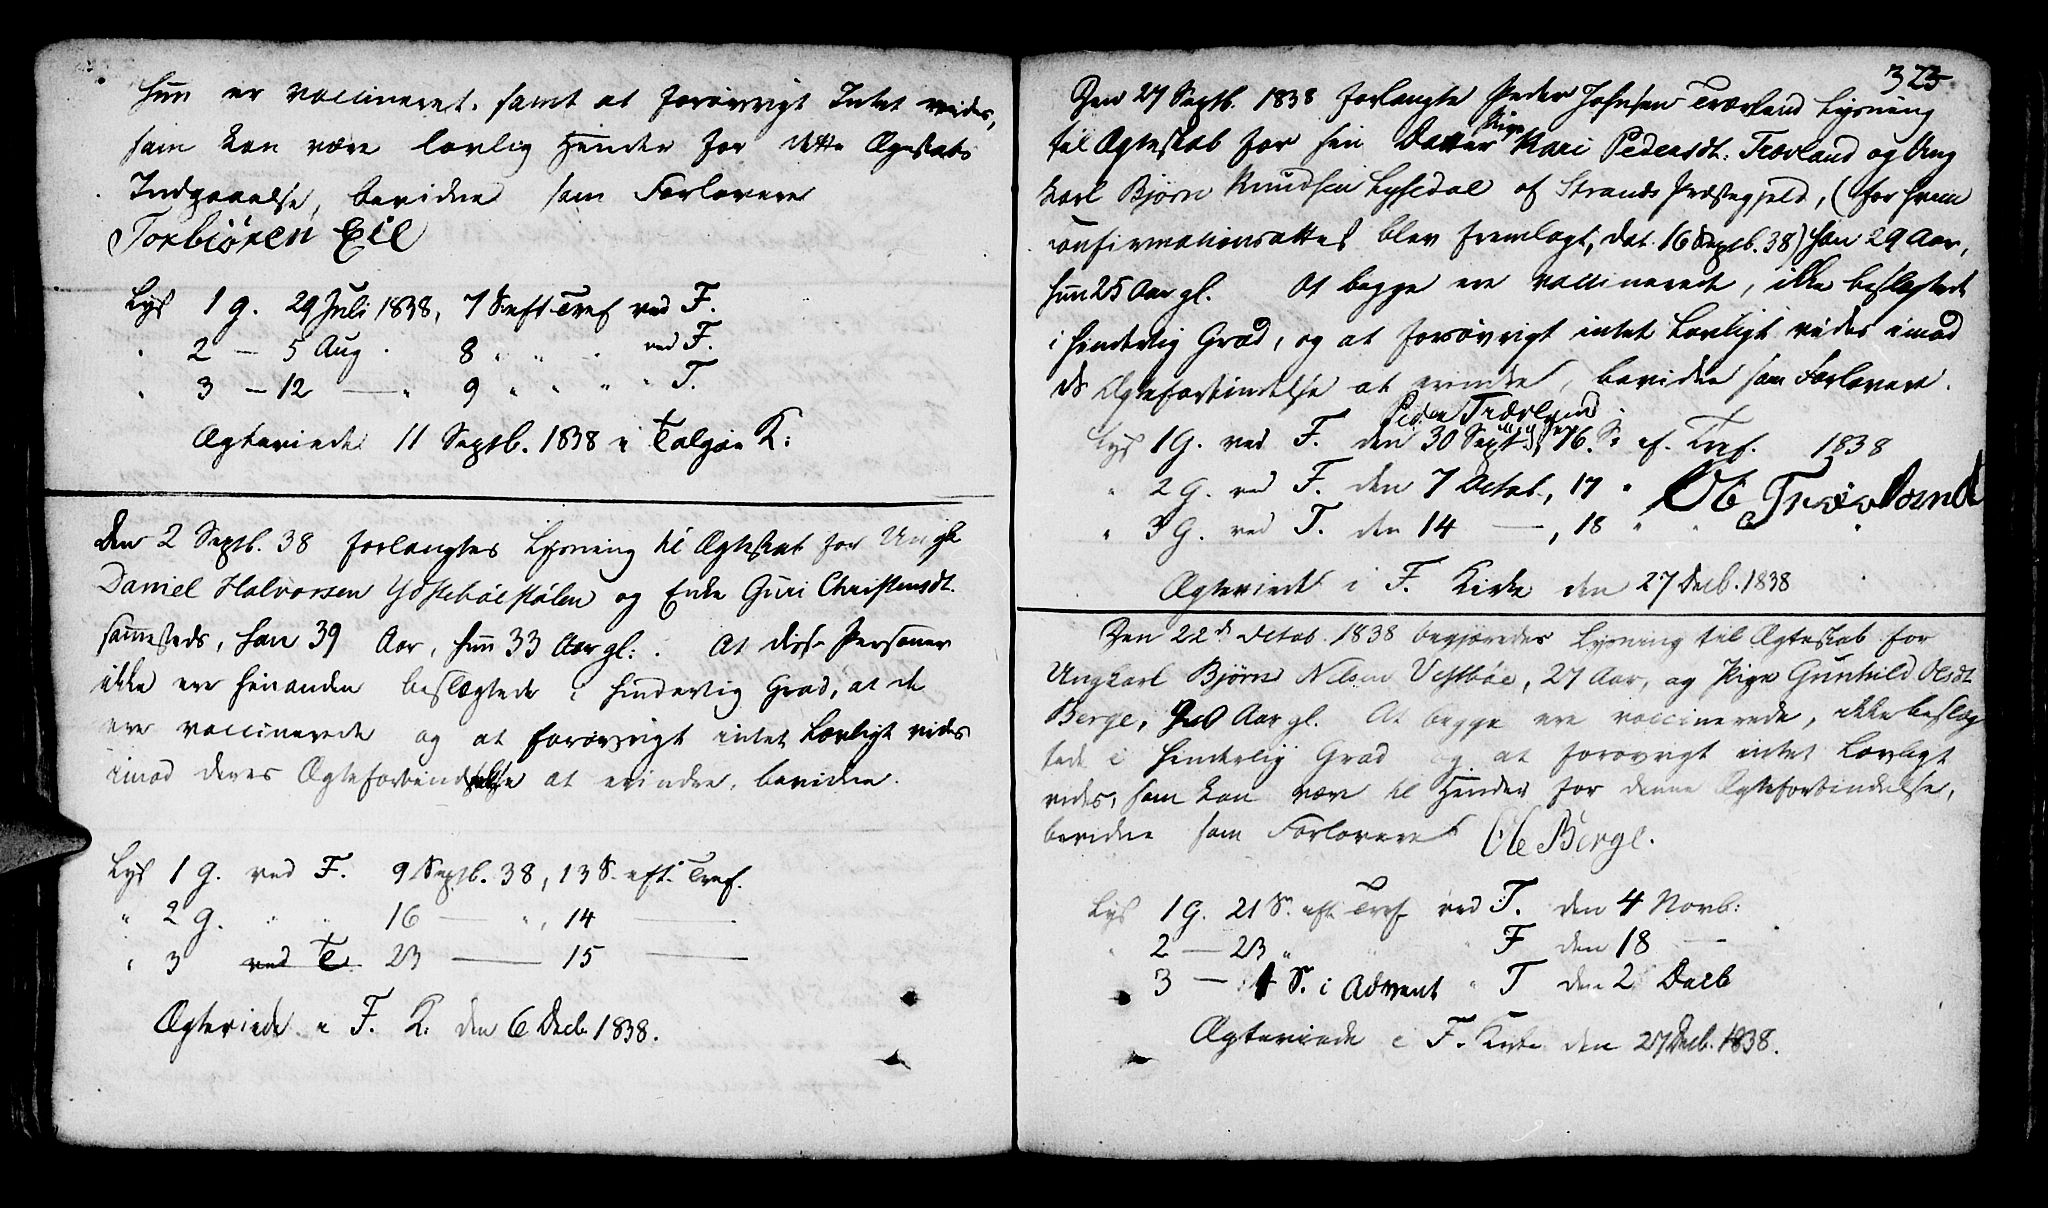 hun er vaccineret. samt at forøvrigt Intet veides,
som kan være lovlig Hinder for dette Ægteskabs
Indgaaelse, bevidne som Forlovere
Torbiøren Eie
Lys 1 g. 29 Juli 1838, 7 S. eft Tref ved F.
" 2 — 5 Aug. 8 " " " ved F.
" 3 — 12 — " 9 " " " " T.
Ægteviede 11 Septb. 1838 i Talgøe K:
Den 2 Septb. 38 forlangtes Lysning til Ægteskab for Ungk
Daniel Halvorsen Ydstebøestølen og Enke Guri Christensdt.
sammesteds, han 39 Aar, hun 33 Aar gl: . At disse Personer
ikke ere hinanden beslægtede i hinderlig Grad, at de
ere vaccinerede og at forøvrigt intet Lovligt vides
imod deres Ægteforbindelse at erindre, bevidne.
Lys 1 g. ved F. 9 Septb. 38, 13 S. eft. Tref.
" 2 g. " " 16 — ", 14 —
" 3 ved T. 23 — 15 —
Ægteviede i F. K: den 6 Decb. 1838.
323
Den 27 Septb. 1838 forlangte Peder Johnsen Træland Lysning
til Ægteskab for sin Datter Pige Kari Pedersdt: Træland og Ung
karl Bjørn Knudsen Lysedal af Strands Præstegjeld, (for hvem
Confirmationsattest blev fremlagt, dat. 16 Septb. 38) han 29 Aar,
hun 25 Aar gl. At begge ere vaccinerede, ikke beslægtede
i hinderlig Grad, og at forøvrigt intet Lovligt vides imod
ds Ægteforbindelse at erindre, bevidne som Forlovere.
Peder Træland
Lys 1 G. ved F. den 30 Septb, 16. S: ef. Tref. 1838
" 2 G. ved F. den 7 Octob., 17 " Ole Træland
" 3 G. ved T. den 14 —, 18 " "
Ægteviede i F. Kirke den 27 Decb. 1838
Den 22de Octob. 1838 begjæredes Lysning til Ægteskab for
Ungkarl Bjørn Nilsen Vestbøe, 27 Aar, og Pige Gunhild Olsdt
Berge, Aar gl. At begge ere vaccinerede, ikke beslæg
tede i hinderlig Grad og at forøvrigt intet Lovligt
vides, som kan være til Hinder for denne Ægteforbindelse,
bevidne som Forlovere Ole Berge.
Lys 1 G. 21 S. eft Tref ved T. den 4 Novb:
" 2 — 23 " " F den 18 —
3 — 1 S. i Advent " T den 2 Decb
Ægteviede i F. Kirke den 27 Decb. 1838.